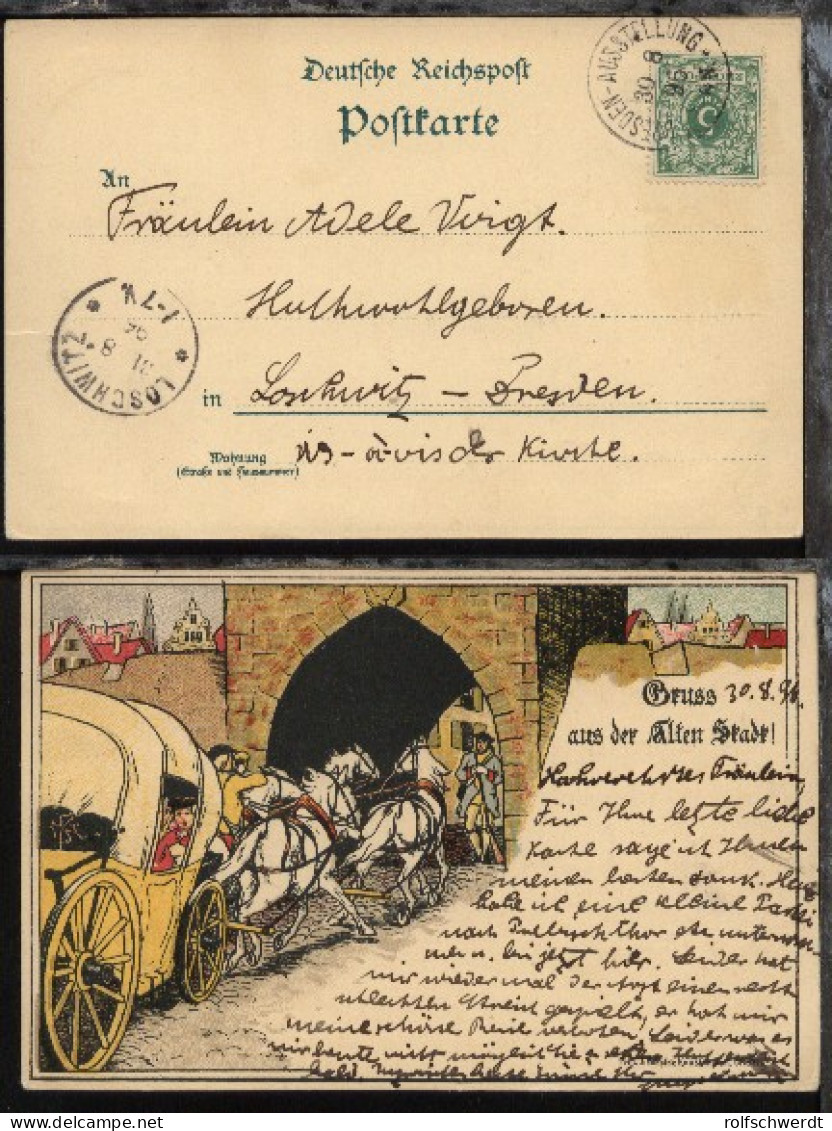 Deutsche Reichspost
Postkarte
DRESDEN-AUSSTELLUNG
30 8
96
5
An
Fräulein Adele Voigt.
Hochwohlgeboren.
in Loschwitz – Dresden.
Wohnung
(Straße und Hausnummer)
vis-à-vis der Kirche.
LOSCHWITZ
31 8
1-7V.
Gruss 30.8.96.
aus der Alten Stadt!
Hochverehrtes Fräulein,
Für Ihre letzte liebe
Karte sage ich Ihnen
meinen besten Dank. Heute
habe ich eine kleine Partie
nach
men u. bin jetzt hier. Leider hat
mir wieder mal der Arzt einen recht
schlechten Streich gespielt, er hat mir
meine schöne Reise verboten. Leider war es
mir heute nicht möglich Sie
bald.
rolfschwerdt